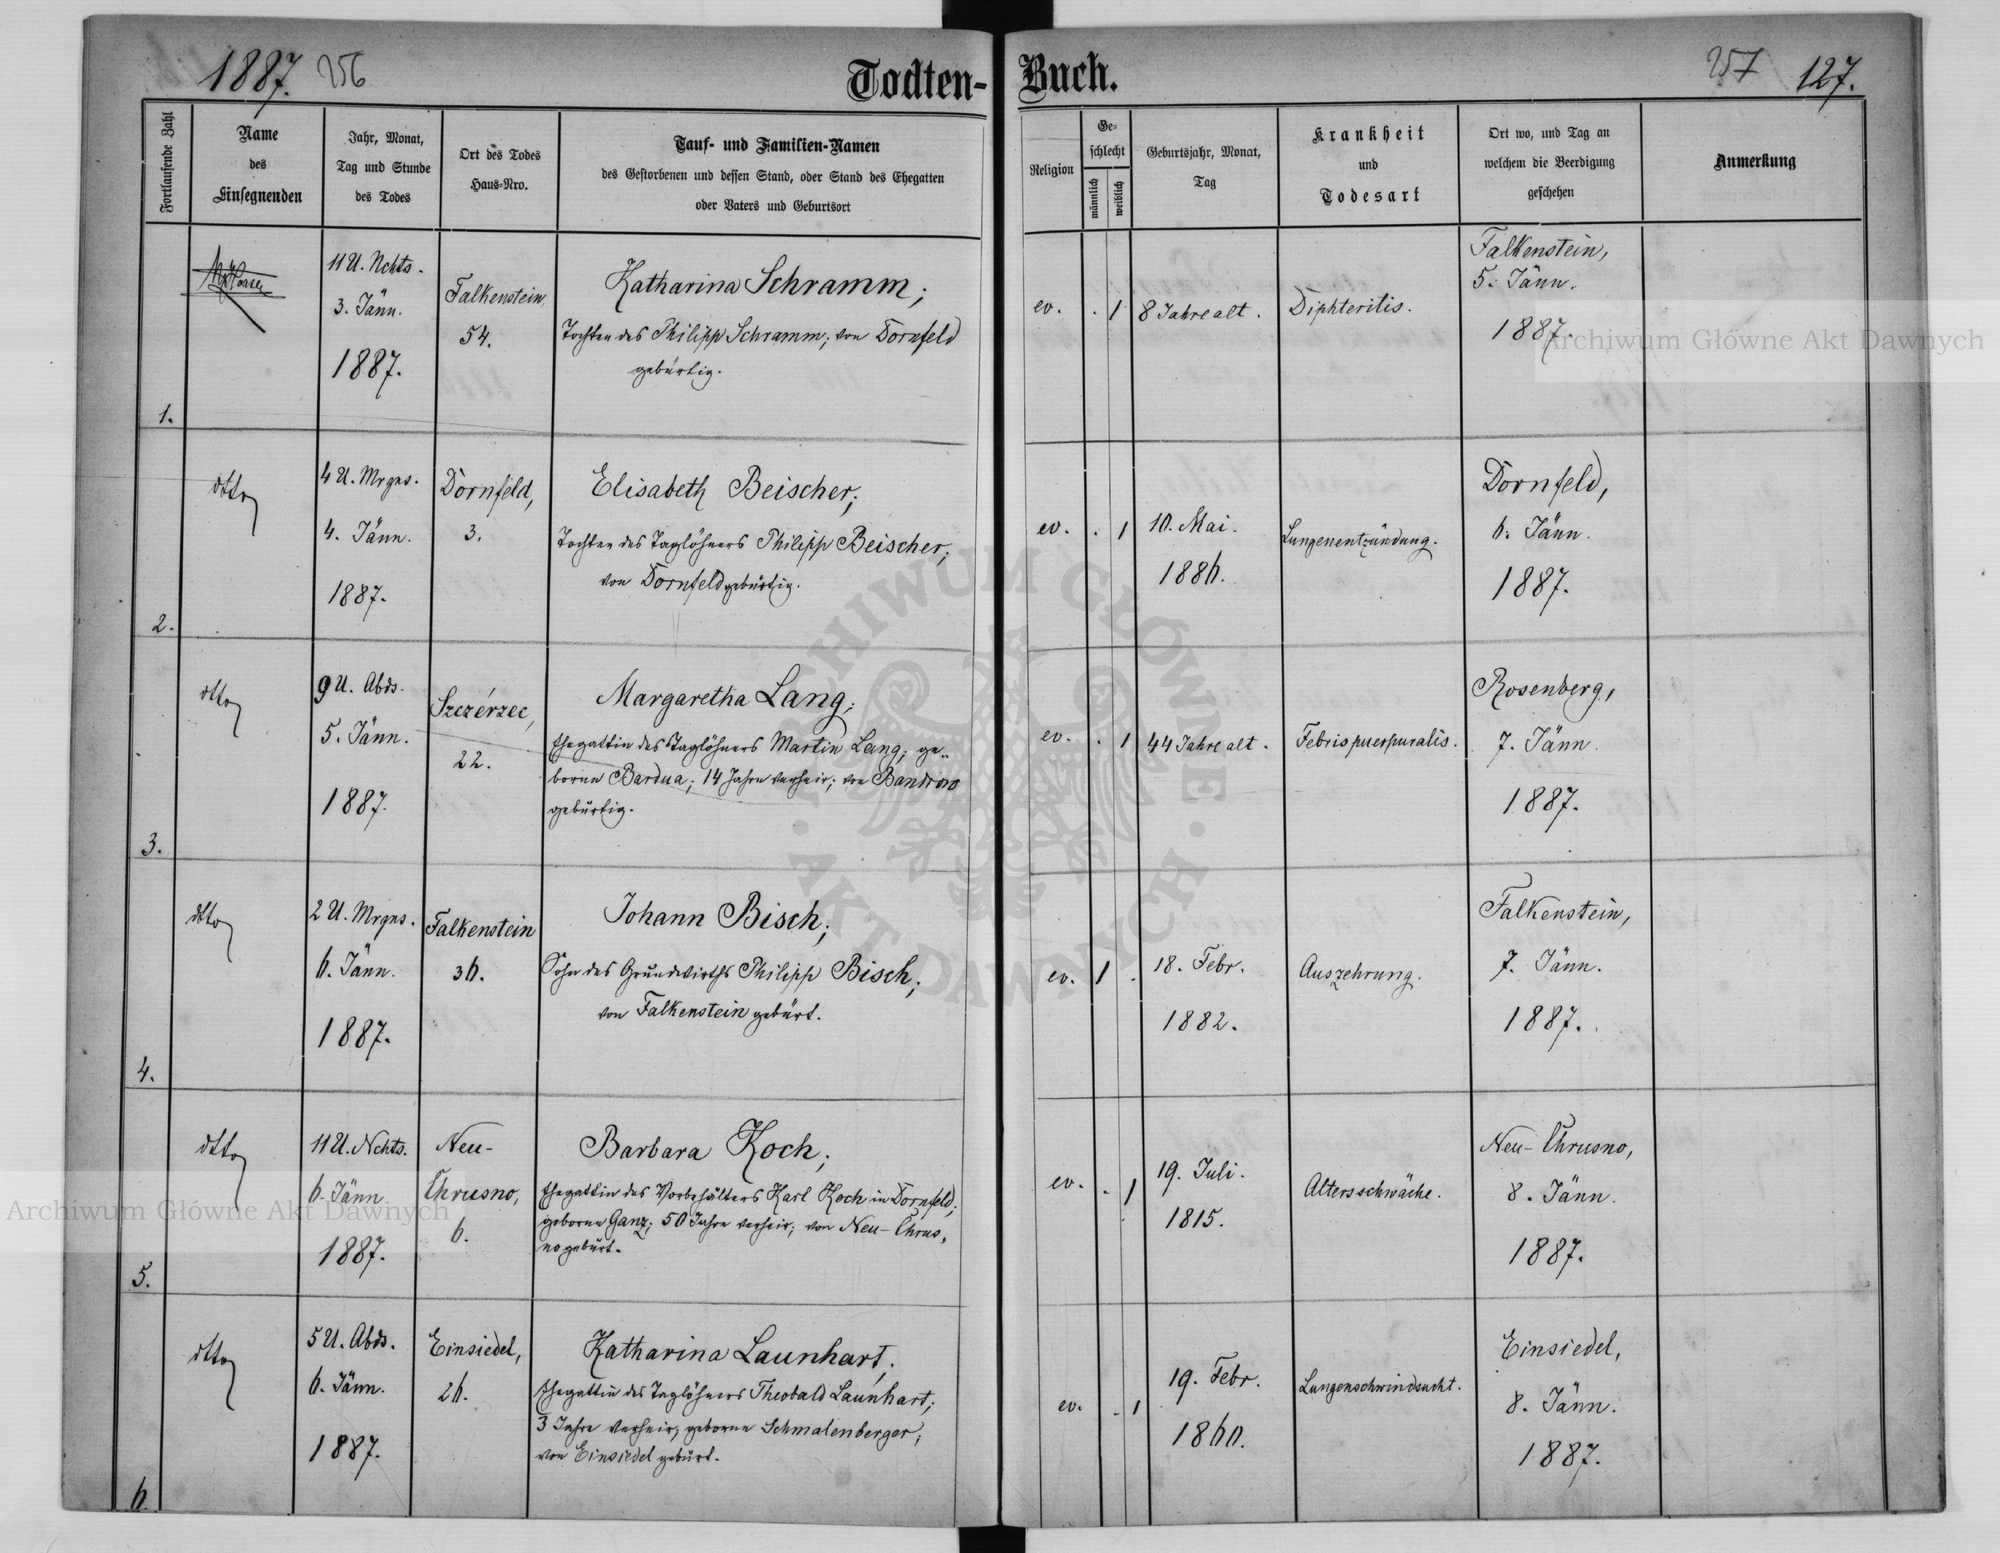 1887. 256
Todten-
Buch.
257 127.
Fortlaufende Zahl
Name
des
Einsegnenden
Jahr, Monat,
Tag und Stunde
des Todes
Ort des Todes
Haus-Nro.
Tauf- und Familien-Namen
des Gestorbenen und dessen Stand, oder Stand des Ehegatten
oder Vaters und Geburtsort
Religion
Ge-
schlecht
männlich
weiblich
Geburtsjahr, Monat,
Tag
Krankheit
und
Todesart
Ort wo, und Tag an
welchem die Beerdigung
geschehen
Anmerkung
1.
11 U. Nchts.
3. Jänn.
1887.
Falkenstein,
54.
Katharina Schramm;
Tochter des Philipp Schramm; von Dornfeld
gebürtig.
ev. . 1
8 Jahre alt.
Diphteritis.
Falkenstein,
5. Jänn.
1887.
2.
dtto
4 U. Mrgns.
4. Jänn.
1887.
Dornfeld,
3.
Elisabeth Beischer;
Tochter des Taglöhners Philipp Beischer;
von Dornfeld gebürtig.
ev. . 1
10. Mai.
1886.
Lungenentzündung.
Dornfeld,
6. Jänn.
1887.
3.
dtto
9 U. Abds.
5. Jänn.
1887.
Szczérzec,
22.
Margaretha Lang;
Ehegattin des Taglöhners Martin Lang; ge-
borne Bardua; 14 Jahre verheir; von Bandrow
gebürtig.
ev. . 1
44 Jahre alt.
Febris puerpuralis.
Rosenberg,
7. Jänn.
1887.
4.
dtto
2 U. Mrgns.
6. Jänn.
1887.
Falkenstein
36.
Johann Bisch;
Sohn des Grundwirths Philipp Bisch;
von Falkenstein gebürt.
ev. 1 .
18. Febr.
1882.
Auszehrung.
Falkenstein,
7. Jänn.
1887.
5.
dtto
11 U. Nchts.
6. Jänn
1887.
Neu-
Chrusno,
6.
Barbara Koch;
Ehegattin des Vorbehälters Karl Koch in Dornfeld;
geborne Ganz; 50 Jahre verheir; von Neu-Chrus-
no gebürt.
ev. . 1
19. Juli.
1815.
Altersschwäche.
Neu-Chrusno,
8. Jänn.
1887.
6.
dtto
5 U. Abds.
6. Jänn.
1887.
Einsiedel,
26.
Katharina Launhart;
Ehegattin des Taglöhners Theobald Launhart;
3 Jahre verheir; geborne Schmalenberger;
von Einsiedel gebürt.
ev. . 1
19. Febr.
1860.
Lungenschwindsucht.
Einsiedel,
8. Jänn.
1887.
Archiwum Główne Akt Dawnych
ARCHIWUM GŁÓWNE · AKT DAWNYCH ·
Archiwum Główne Akt Dawnych